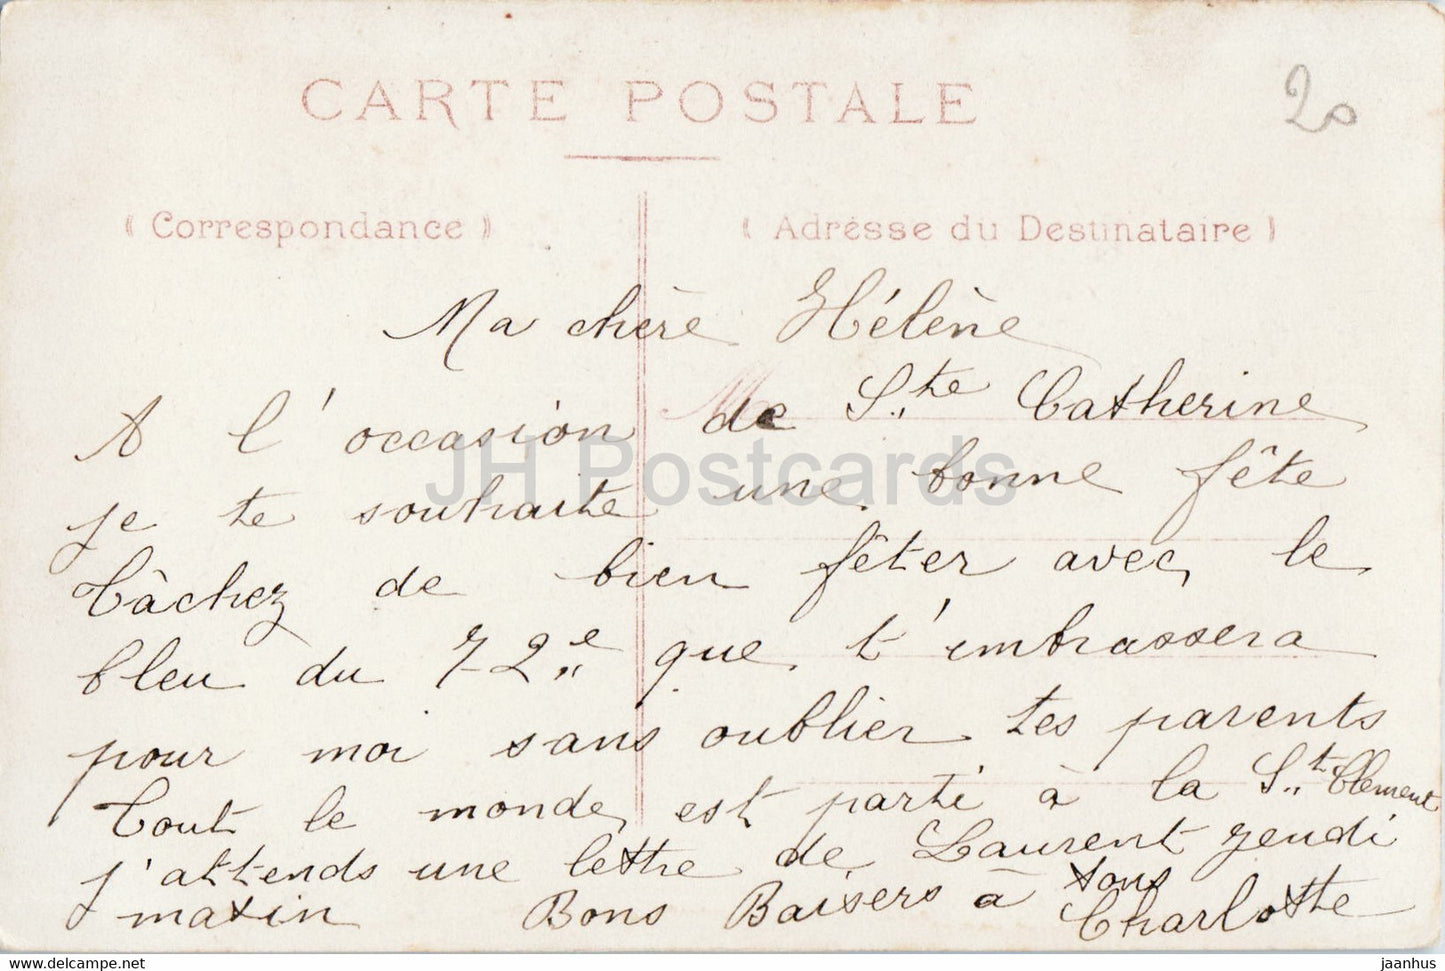 CARTE POSTALE
20
( Correspondance )
( Adresse du Destinataire )
Ma chère Hélène
A l'occasion de Ste Catherine
je te souhaite une bonne fête
Tâchez de bien fêter avec le
bleu du 72e que t'embrassera
pour moi sans oublier tes parents
Tout le monde est parti à la St Clement
j'attends une lettre de Laurent jeudi
matin Bons Baisers à tous
Charlotte
M
JH Postcards
www.delcampe.net
jaanhus